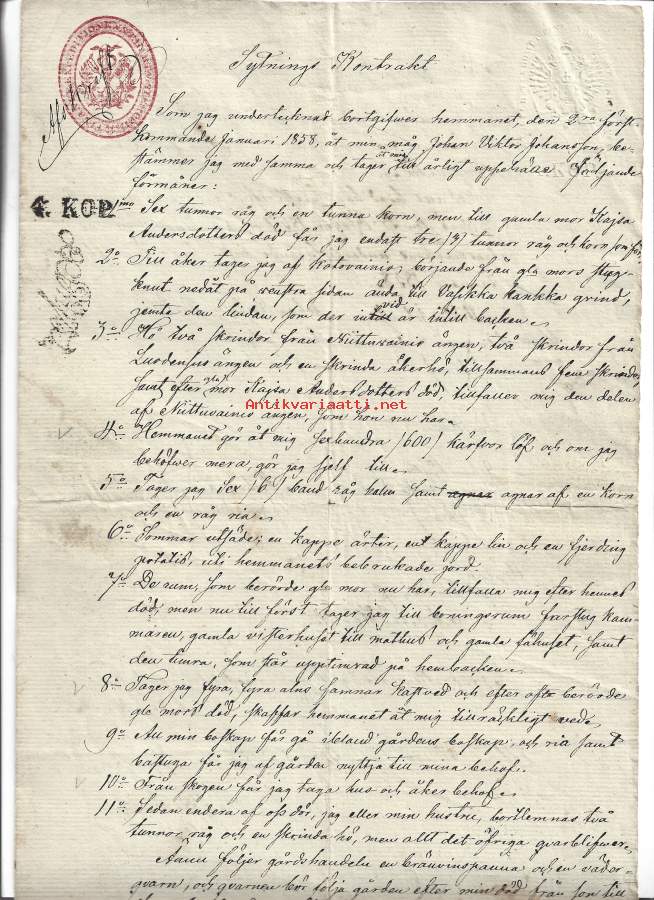 Afskrift
Sytnings Kontrakt
Som jag undertecknad bortgifwes hemmanet, den 2ra först-
kommande Januari 1858, åt min måg Johan Viktor Johansson, be-
stämmes jag med samma och tager åt mig till årligt uppehälle följande
förmåner:
4. KOP.
1mo Sex tunnor råg och en tunna korn, men till gamla mor Kajsa
Andersdotters död får jag endast tre /3/ tunnor råg och korn som för
2o Till åker tages jag af Kotovainio, börjande från gla mors
knut nedåt på wenstra sidan ända till Vasikka hankka grind,
jemte den lindan, som der intill vid är intill backen.
3o Hö två skrindor från Niittuvainio ängen, två skrindor från
Luodensuu ängen och en skrinda åkerhö, tillsammans fem skrindor,
samt efter gla mor Kajsa Andersdotters död, tillfaller mig den delen
af Niittuvainio ängen, som hon nu har.
Antikvariaatti.net
4o Hemmanet gör åt mig sexhundra /600/ kärfvor löf och om jag
behöfwer mera, gör jag sjelf till.
5o Tager jag Sex /6/ band råg halm samt agnar agnar af en korn
och en råg ria.
6o Sommar utsäde: en kappe ärter, ent kappe lin och en fjerding
potatis, uti hemmanets bebrukade jord.
7o De rum, som berörde gla mor nu har, tillfalla mig efter hennes
död, men nu till först tager jag till boningsrum framstug kam-
maren, gamla visterhuset till mathus och gamla fähuset, samt
den timra, som står upptimrad på hembacken.
8o Tager jag fyra, fyra alns famnar kastved och efter ofta berörde
gla mors död, skaffar hemmanet åt mig tillräckligt wed.
9o All min boskap får gå ibland gårdens boskap, och ria samt
bastuga får jag af gården nyttja till mina behof.
10o Från skogen får jag taga hus och åker behof.
11o Sedan endera af oss dör, jag eller min hustru, bortlemnas två
tunnor råg och en skrinda hö, men allt det öfriga qvarblifwer.
Ännu följer gårdshandeln en bränvinspanna och en väder-
qvarn, och qvarnen bör följa gården efter min död från son till